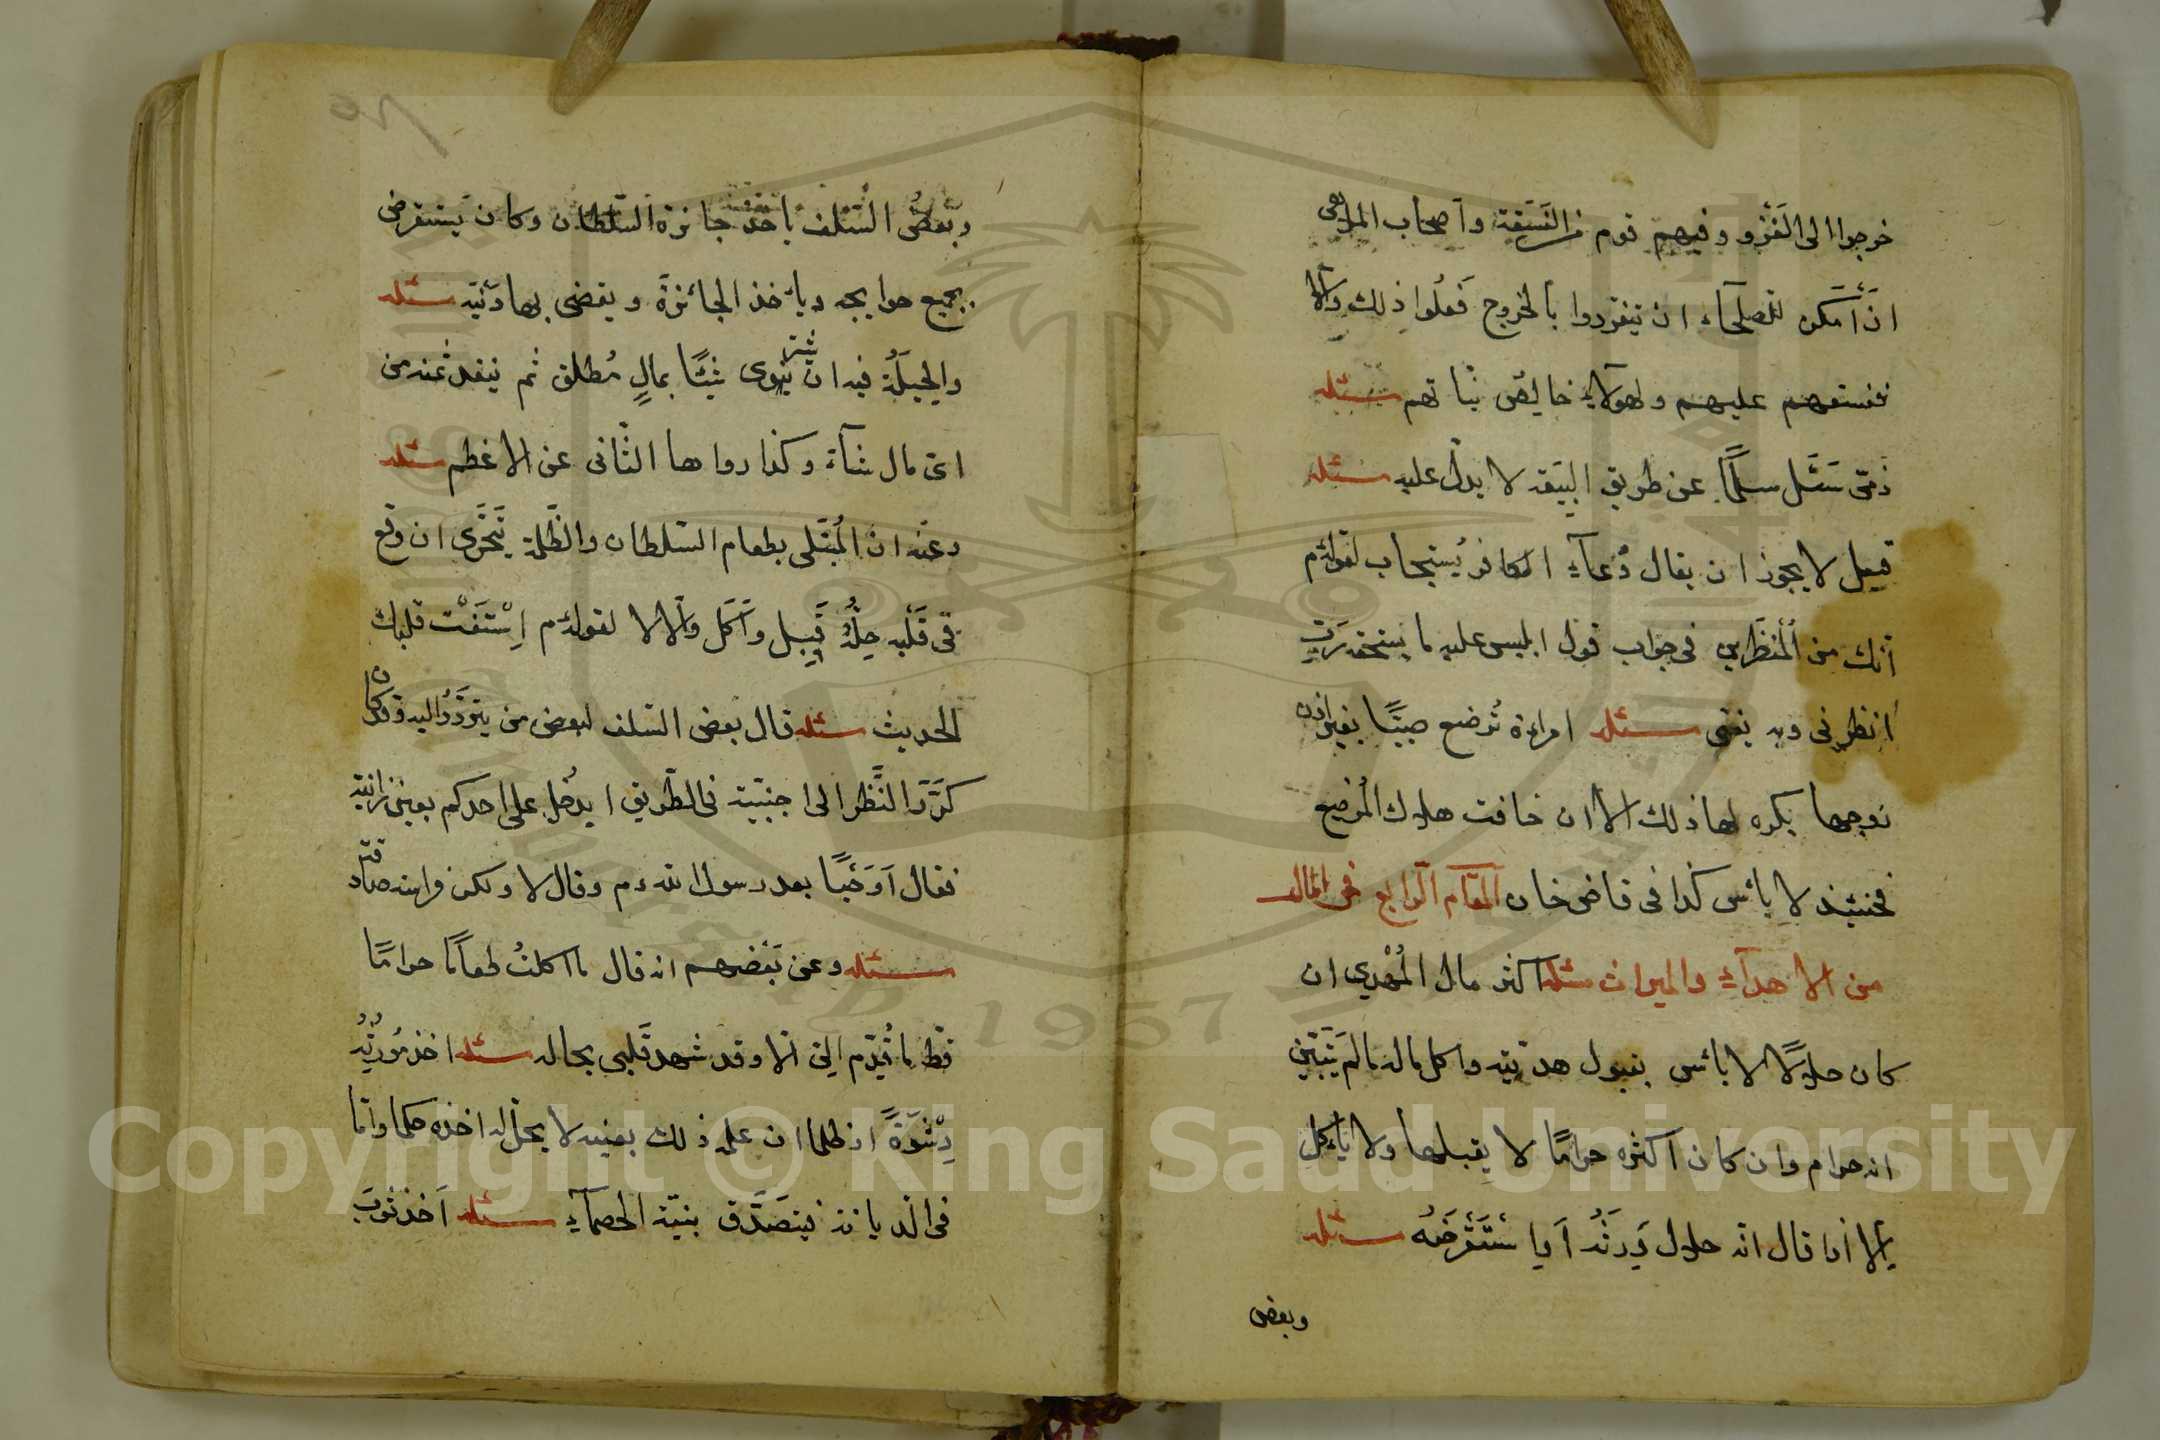 خرجوا الى الغَزو وفيهم قوم من الفَسَقة واصحاب الملاهى
ان أَمكن للصلحآء ان يتفردوا بالخروج فَعلُوا ذلك والّا
ففسقهم عليهم ولهؤلآءِ خالِصُ نيّاتهم مسئله
ذمّى سَئَل مسلمًا عن طريق البيعَه لا يدلّ عليه مسئله
قيل لا يجوز ان يقال دُعآءِ الكافر يُستجاب لقوله م
انّك من المُنظَرين فى جواب قول ابليس عليه ما يستحقه رَبِّ
اَنظرنى وبه يفتى مسئله امراءة تُرضع صبيًّا بغير اذن
زوجها يكره لها ذلك الّا ان خافت هلاك المُرضع
فحينئذ لا بائس كذا فى قاضى خان المقام الرّابع فى المال
من الاهدآءِ والميراث مسئله اكثر مال المُهْدِي ان
كان حلالًا لا بائس بقبول هديّته واكل ماله ما لم يَتَبَيّن
انه حرام وان كان اكثره حرامًا لا يقبلها ولا يأكل
الّا اذا قال انّه حلال وَرِثَه اَو استَقْرَضَه مسئله
وبعض
وبَعضُ السّلف ياخذ جائزة السّلطان وكان يستقرض
بجميع حوايجه ويأخذ الجائزة ويقضى بها دَيْنَه مسئله
والحِيلَةُ فيه ان يشترى شيئًا بمالٍ مُطلق ثم ينقد ثمنه من
اىّ مال شآءَ وكذا رواها الثّانى عن الاعظم مسئله
وعنه انّ المُبتَلى بطعام السّلطان والظَّلمة يَتَحَرَّى ان وقع
فى قَلْبه حِلُّهُ قَبِل وأَكَل والّا لا لقوله م اِسْتَفْت قلبك
الحديث مسئله قال بعض السّلف لبعض من يتردّد اليه وقد كان
كرَّرَ النَّظر الى اجنبيّة فى الطّريق ايدخل على احدكم بعين زانية
فقال اَوَحْيًا بعد رسول الله م وقال لا ولكن فراسة صادقة
مسئله وعن بَعْضهم انه قال ما اكلتُ طعامًا حرامًا
قط ما قُدّم اِلىّ الّا وقد شهد قَلبى بحاله مسئله اخذ مُورّثُه
رِشْوَةً او ظلما ان علم ذلك بعينه لا يحلّ له اخذه حكما وامّا
فى الدّيانة فيتصَدَّق بنيّة الخصمآءِ مسئله اَخذ ثوبَ
Copyright © King Saud University
1957